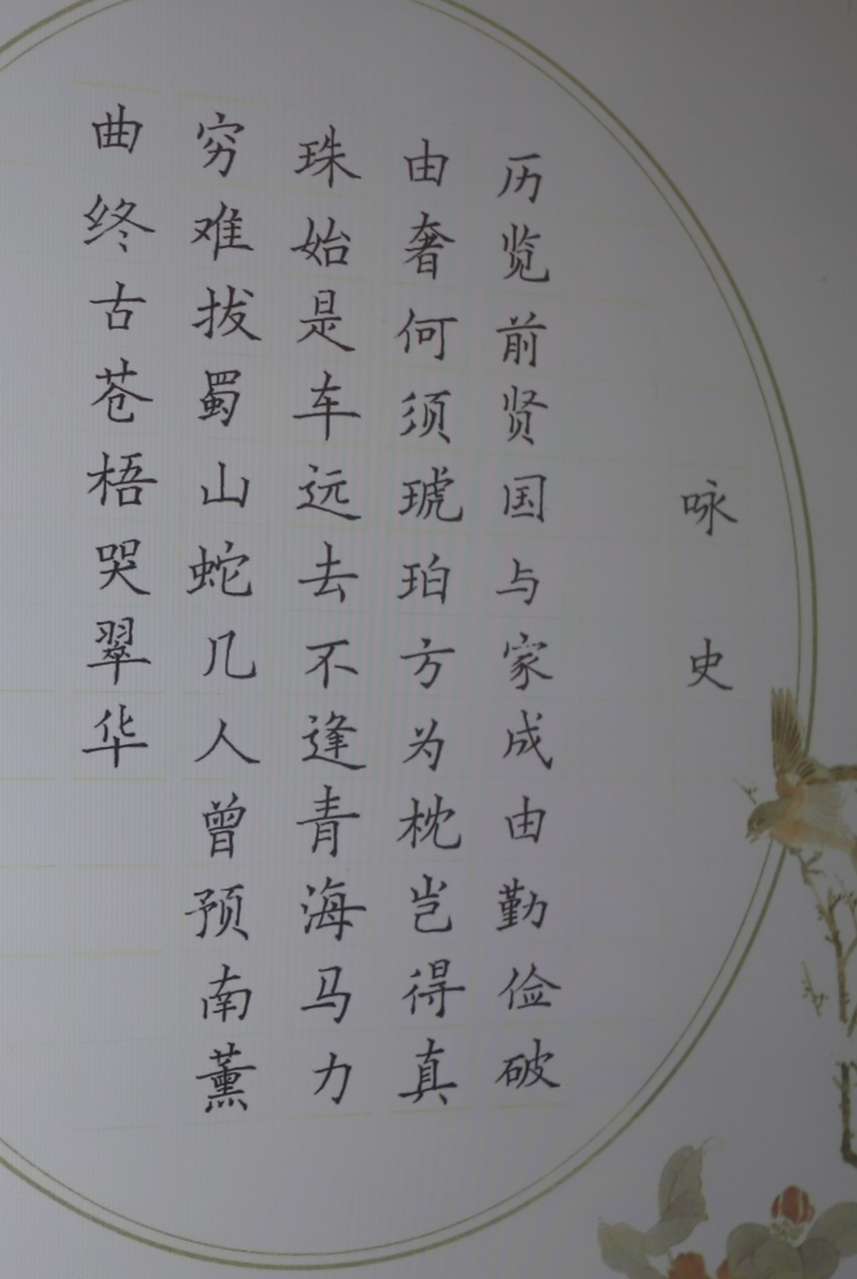 咏史
历览前贤国与家成由勤俭破
由奢何须琥珀方为枕岂得真
珠始是车远去不逢青海马力
穷难拔蜀山蛇几人曾预南薰
曲终古苍梧哭翠华